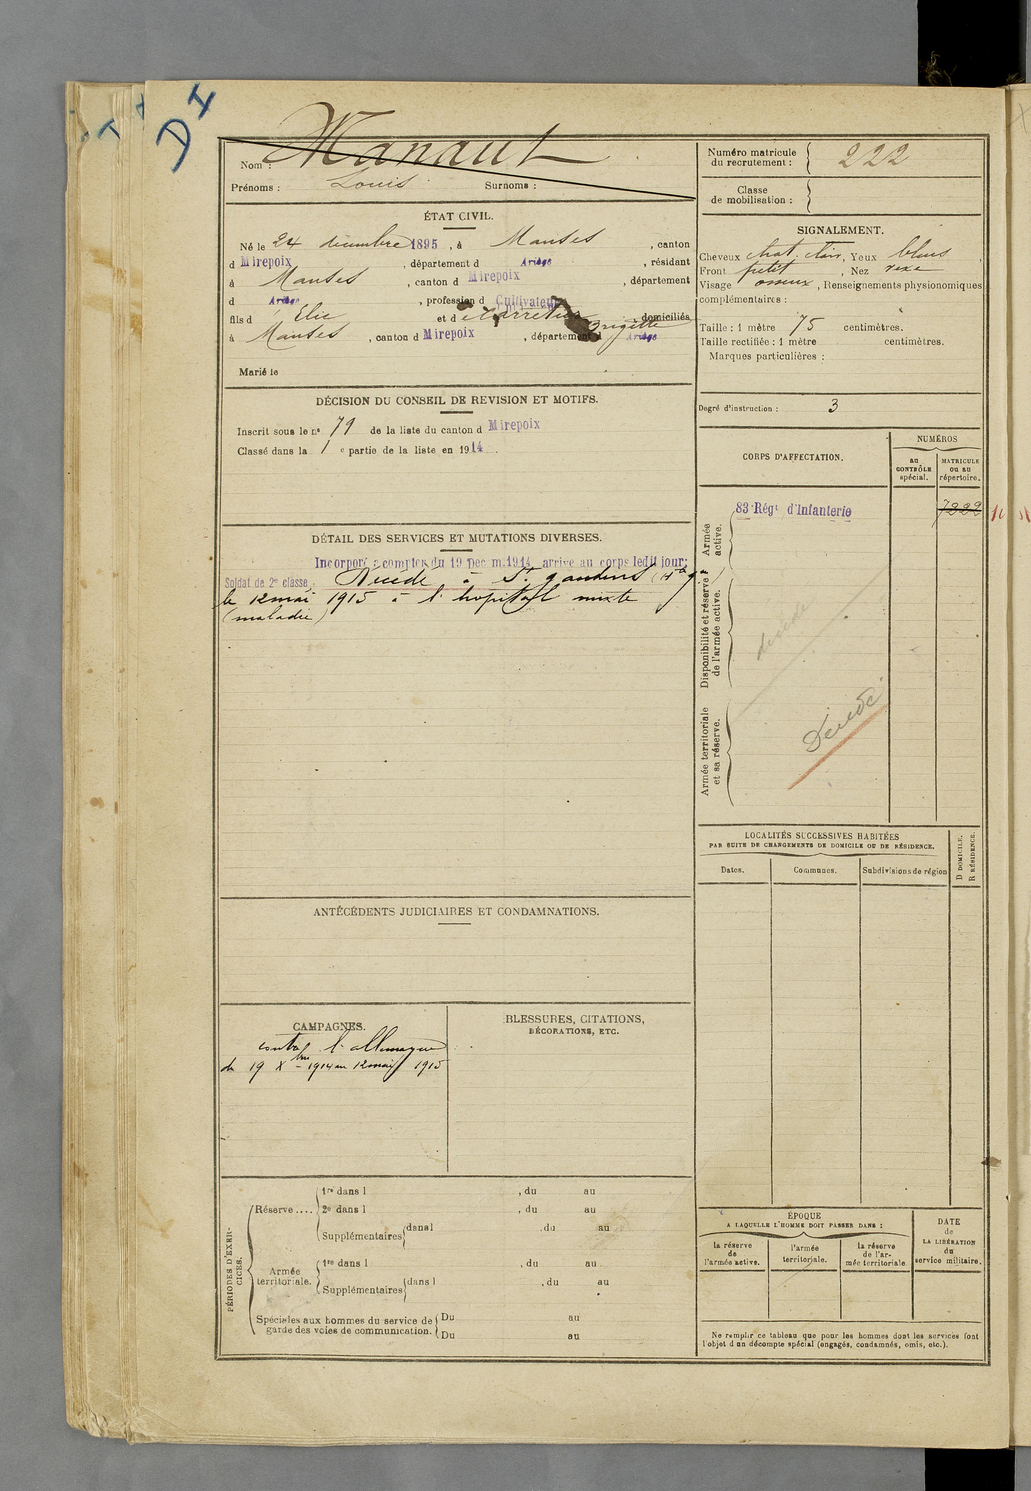 DI
Nom : Manaut
Prénoms : Louis Surnoms :
Numéro matricule du recrutement : 222
Classe de mobilisation :
ÉTAT CIVIL.
Né le 24 décembre 1895, à Manses, canton
d Mirepoix, département d Ariège, résidant
à Manses, canton d Mirepoix, département
d Ariège, profession d Cultivateur
fils d Elie et de Brigitte domiciliés
à Manses, canton d Mirepoix, département d Ariège
Marié le
SIGNALEMENT.
Cheveux chat. clair, Yeux bleus
Front petit, Nez
Visage osseux, Renseignements physionomiques
complémentaires :
Taille : 1 mètre 75 centimètres.
Taille rectifiée : 1 mètre centimètres.
Marques particulières :
Degré d'instruction : 3
DÉCISION DU CONSEIL DE REVISION ET MOTIFS.
Inscrit sous le n° 79 de la liste du canton d Mirepoix
Classé dans la 1 e partie de la liste en 1914.
CORPS D'AFFECTATION.
NUMÉROS
au CONTRÔLE spécial.
MATRICULE ou au répertoire.
Armée active.
83e Régt d'Infanterie 7222
Disponibilité et réserve de l'armée active.
décédé
Armée territoriale et sa réserve.
Décédé
DÉTAIL DES SERVICES ET MUTATIONS DIVERSES.
Incorporé à compter du 19 Décem. 1914, arrivé au corps ledit jour;
Soldat de 2e classe. Décédé à St gaudens (Hte g.)
le 12 mai 1915 à l'hopital mixte
(maladie)
LOCALITÉS SUCCESSIVES HABITÉES
PAR SUITE DE CHANGEMENTS DE DOMICILE OU DE RÉSIDENCE.
Dates. Communes. Subdivisions de région
D DOMICILE.
R RÉSIDENCE.
ANTÉCÉDENTS JUDICIAIRES ET CONDAMNATIONS.
CAMPAGNES.
contre l'allemagne
du 19 Xbre 1914 au 12 mai 1915
BLESSURES, CITATIONS,
DÉCORATIONS, ETC.
PÉRIODES D'EXERCICES.
Réserve....
1re dans l , du au
2e dans l , du au
Supplémentaires dans l , du au
Armée territoriale.
1re dans l , du au
Supplémentaires dans l , du au
Spéciales aux hommes du service de garde des voies de communication.
Du au
Du au
ÉPOQUE
A LAQUELLE L'HOMME DOIT PASSER DANS :
la réserve de l'armée active.
l'armée territoriale.
la réserve de l'armée territoriale.
DATE de LA LIBÉRATION du service militaire.
Ne remplir ce tableau que pour les hommes dont les services font
l'objet d'un décompte spécial (engagés, condamnés, omis, etc.).